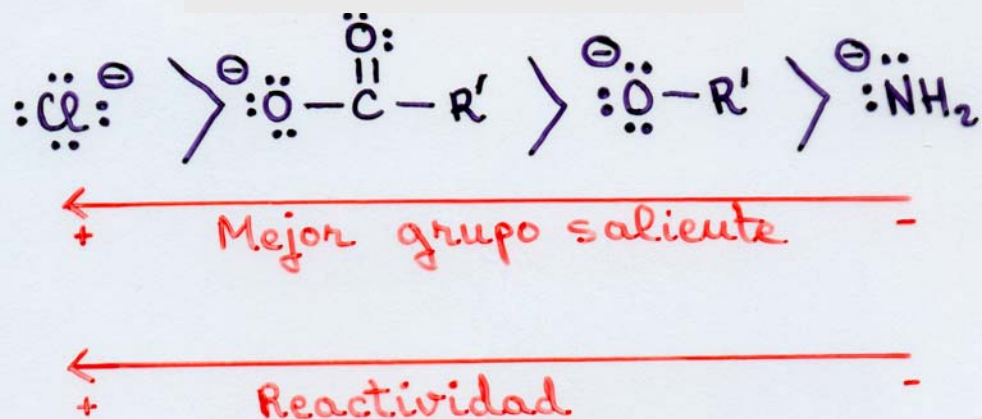 :Ö:
||
:C̈l:⊖ > ⊖:Ö—C—R' > ⊖:Ö—R' > ⊖:N̈H₂
+ Mejor grupo saliente -
+ Reactividad -